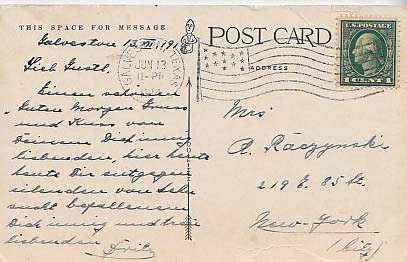 THIS SPACE FOR MESSAGE
POST CARD
ADDRESS
Galveston 13. VI. 191
GALVESTON TEXAS
JUN 13
11-PM
1 CENT 1
Lieb Gustl.
Einen schönen
Guten Morgen Gruss
und Kuss von
Deinem Dich innig
liebenden, hier heute
heute Dir entgegen
eilenden von
befallenem
Dich innig und treu
liebenden Fritz
Mrs
A. Raczynski
219 E. 85 St.
New-York
(City)